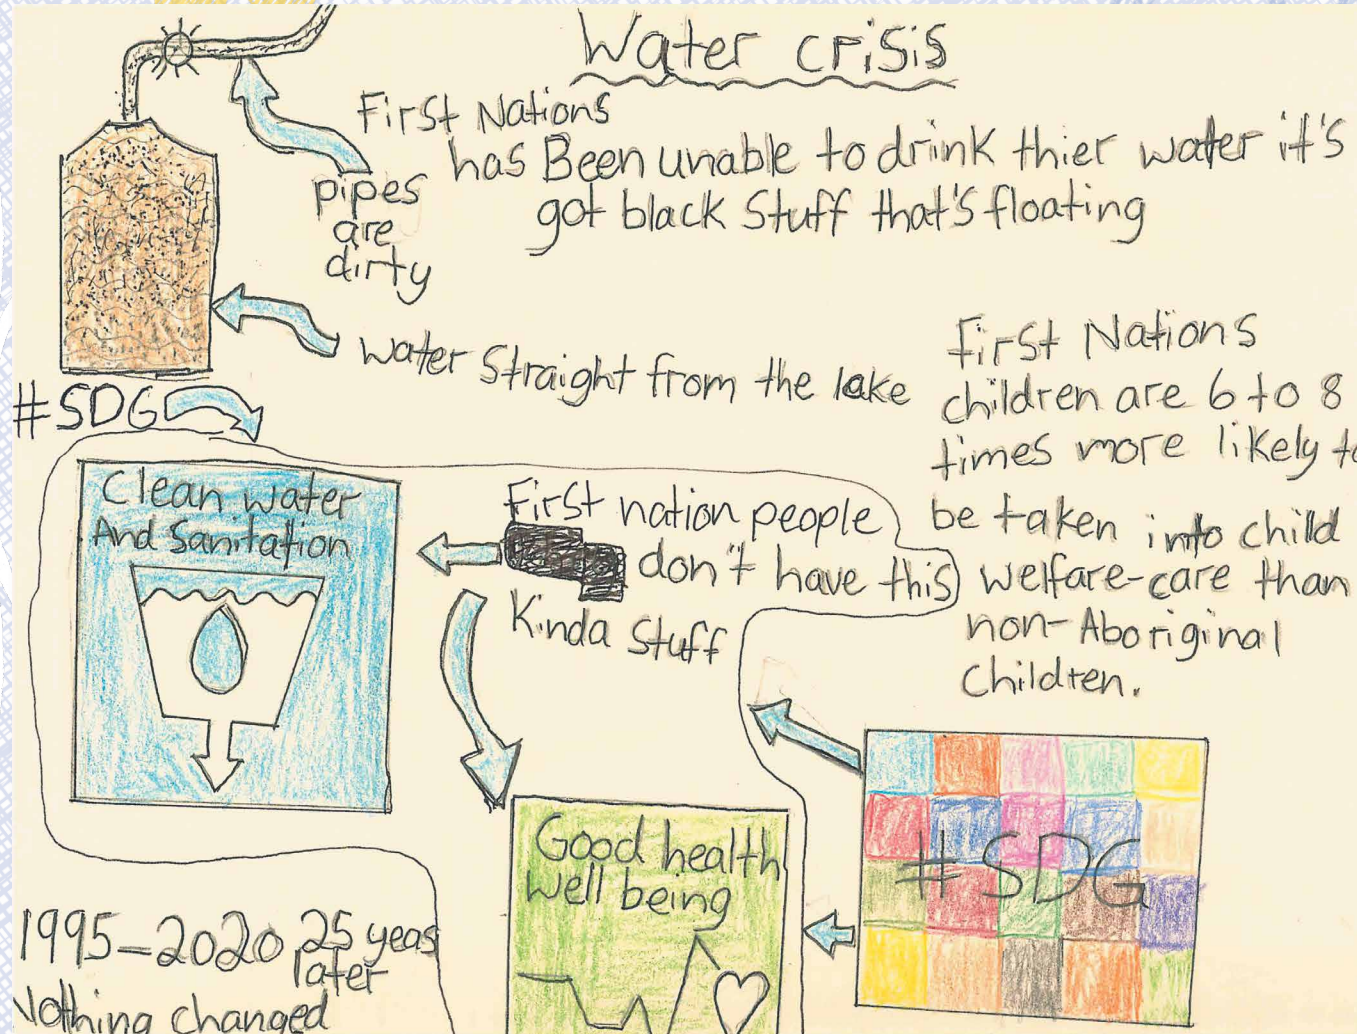 Water crisis
First Nations
has Been unable to drink thier water it's
got black Stuff that's floating
pipes
are
dirty
water Straight from the lake
First Nations
children are 6 to 8
times more likely to
be taken into child
welfare-care than
non-Aboriginal
Children.
#SDG
Clean water
And Sanitation
First nation people
don't have this
Kinda Stuff
Good health
well being
#SDG
1995-2020 25 yeas
later
Nothing changed